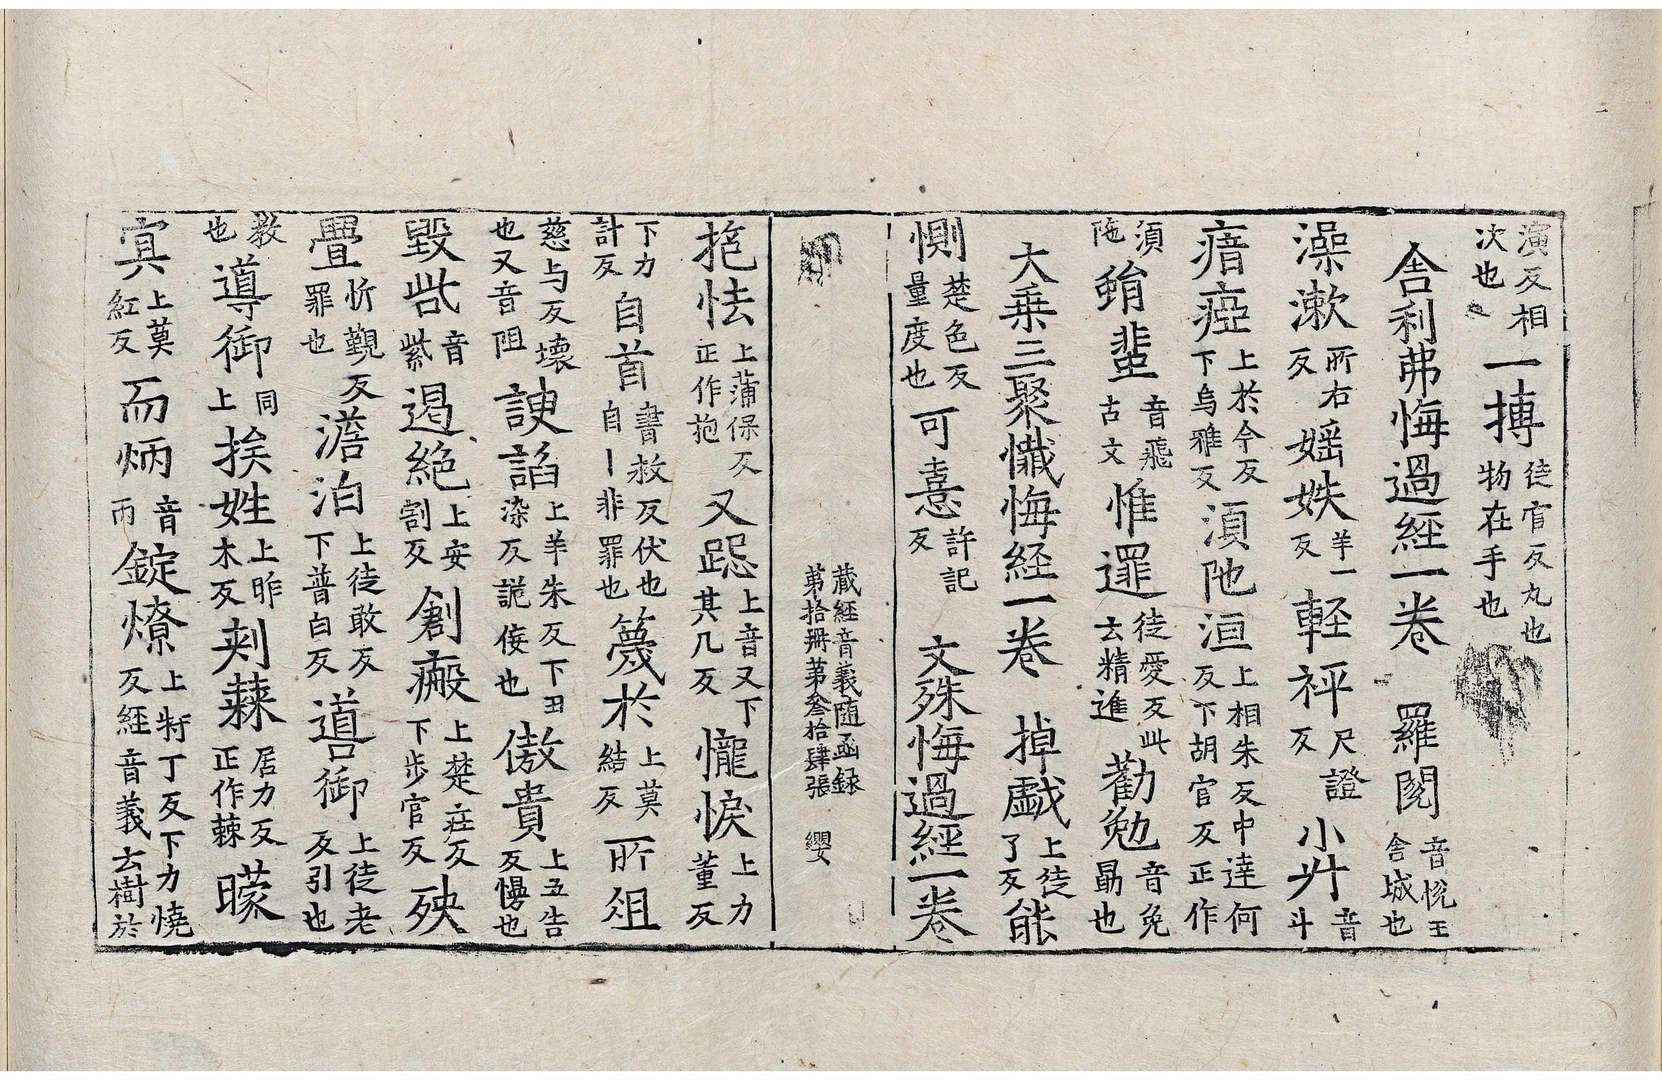 演反相次也一摶徒官反丸也物在手也
舎利弗悔過経一卷 羅閱音悅王舎城也
澡漱所右反婬妷羊一反軽秤尺證反小升音斗
瘖瘂上於今反下烏雅反湏陁洹上相朱反中達何反下胡官反正作
須陁蝟蜚音飛古文惟逻徒愛反此云精進勸勉音免勗也
大乗三聚懺悔経一卷 掉戯上徒了反能
惻楚色反量度也可憙許記反 文殊悔過経一卷
藏経音義随函録
第拾册第叄拾肆張 纓
𢭏怯上蒲保反正作抱又跽上音又下其几反𢤱悷上力董反
下力計反自首書救反伏也自丨非罪也篾於上莫結反所俎
慈与反壊也又音阻諛諂上羊朱反下丑染反詭侫也傲貴上五告反慢也
毀呰音紫遏絶上安割反創瘢上楚庄反下步官反殃
疊忻覲反罪也澹泊上徒敢反下普白反噵御上徒老反引也
教也導御同上挨姓上昨木反刾蕀居力反正作棘曚
㝠上莫紅反而炳音丙錠燎上特丁反下力燒反経音義云樹於